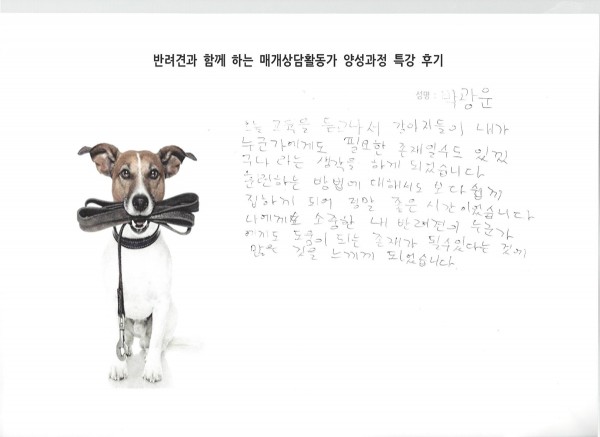 반려견과 함께 하는 매개상담활동가 양성과정 특강 후기
성명 : 박광운
오늘 교육을 듣고나서 강아지들이 내가
누군가에게도 필요한 존재일수도 있겠
구나 라는 생각을 하게 되었습니다
훈련하는 방법에 대해서도 보다쉽게
접하게 되어 정말 좋은 시간이었습니다
나에게도 소중한 내 반려견이 누군가
에게도 도움이 되는 존재가 될수있다는 것에
많은 것을 느끼게 되었습니다.